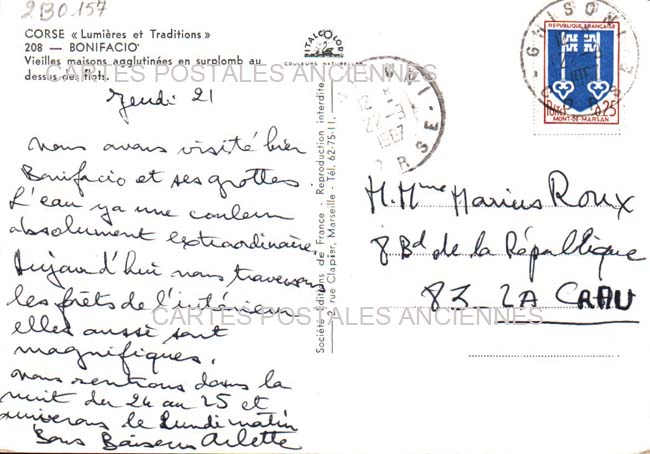 2B0157
CORSE « Lumières et Traditions »
208 — BONIFACIO
Vieilles maisons agglutinées en surplomb au
dessus des flots.
CARTES POSTALES ANCIENNES
Jeudi 21
Nous avons visité hier
Bonifacio et ses grottes..
L'eau y a une couleur
absolument extraordinaire.
Aujourd'hui nous traversons
les forêts de l'intérieur
elles aussi sont
magnifiques.
CARTES POSTALES ANCIENNES
Nous rentrons dans la
nuit du 24 au 25 et
arriverons le lundi matin
Bons Baisers Arlette
ITALCOLOR
COULEURS NATURELLES
Société Editions de France - Reproduction interdite
2, rue Clapier, Marseille - Tél. 62-75-11.
GHISONI
22-9
1967
CORSE
GHISONI
CORSE
REPUBLIQUE FRANÇAISE
POSTES 0,25
MONT-DE-MARSAN
M. Mme Marius Roux
8 Bd de la République
83 LA CRAU